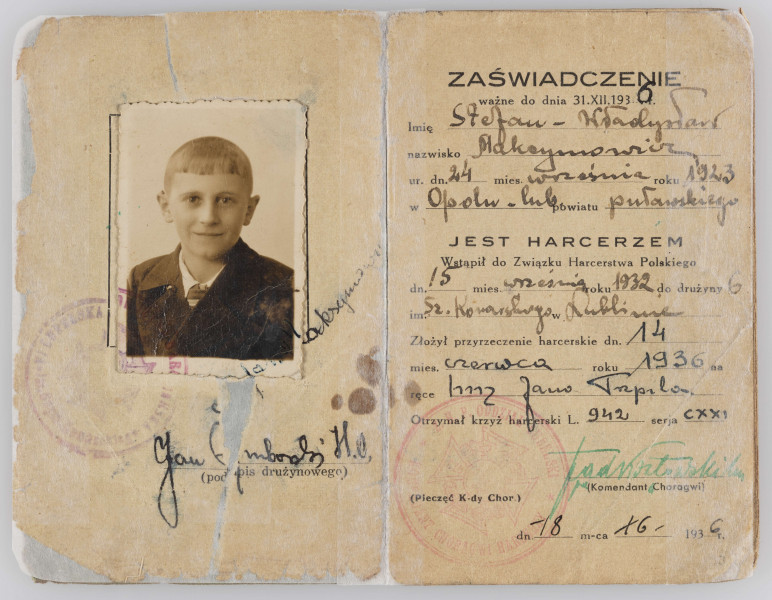 Jan
(podpis drużynowego)
ZAŚWIADCZENIE
ważne do dnia 31.XII.1936 r.
Imię Stefan - Władysław
nazwisko Maksymowicz
ur. dn. 24 mies. września roku 1923
w Opolu - lub. powiatu puławskiego
JEST HARCERZEM
Wstąpił do Związku Harcerstwa Polskiego
dn. 15 mies. września roku 1932 do drużyny 6
im. Sz. Konarskiego w Lublinie
Złożył przyrzeczenie harcerskie dn. 14
mies. czerwca roku 1936 na
ręce hmz Jana
Otrzymał krzyż harcerski L. 942 serja CXXI
(Komendant Chorągwi)
(Pieczęć K-dy Chor.)
dn. 18 m-ca 1936 r.